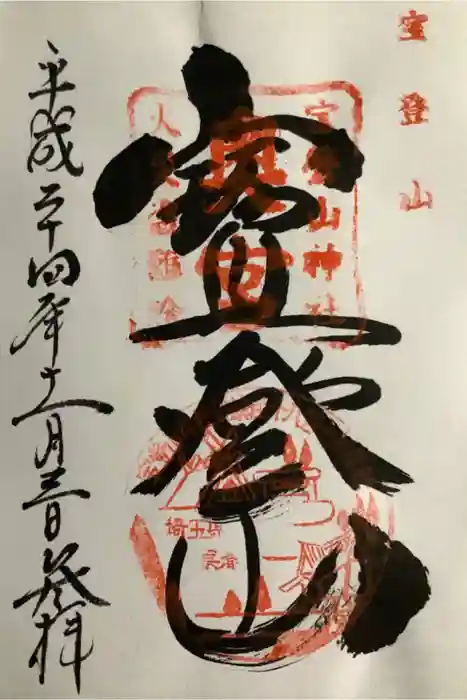 宝登山
宝登山神社
寳登山
埼玉
長瀞
平成二十四年十一月三日登拝